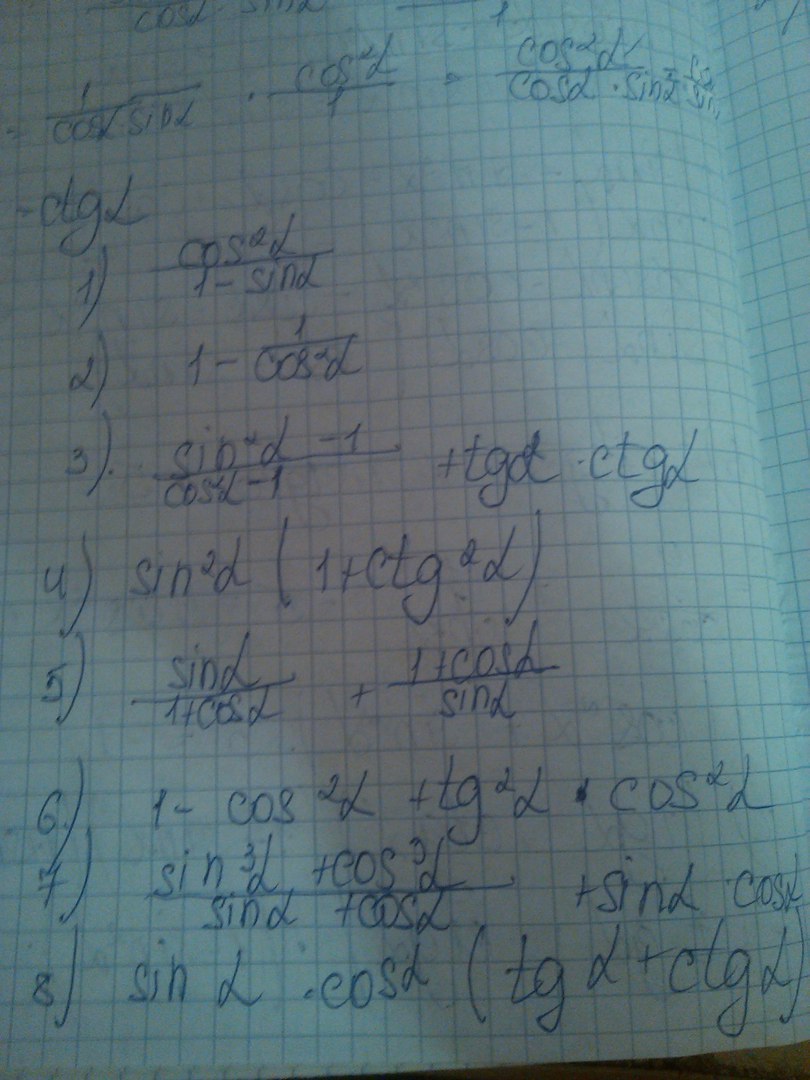 cosα · sinα 1
= 1/(cosα·sinα) · cos²α/1 = cos²α/(cosα · sinα) =
= ctgα
1) cos²α/(1 - sinα)
2) 1 - 1/cos²α
3) (sin²α - 1)/(cos²α - 1) + tgα · ctgα
4) sin²α (1 + ctg²α)
5) sinα/(1 + cosα) + (1 + cosα)/sinα
6) 1 - cos²α + tg²α · cos²α
7) (sin³α + cos³α)/(sinα + cosα) + sinα cosα
8) sin α · cosα (tg α + ctgα)